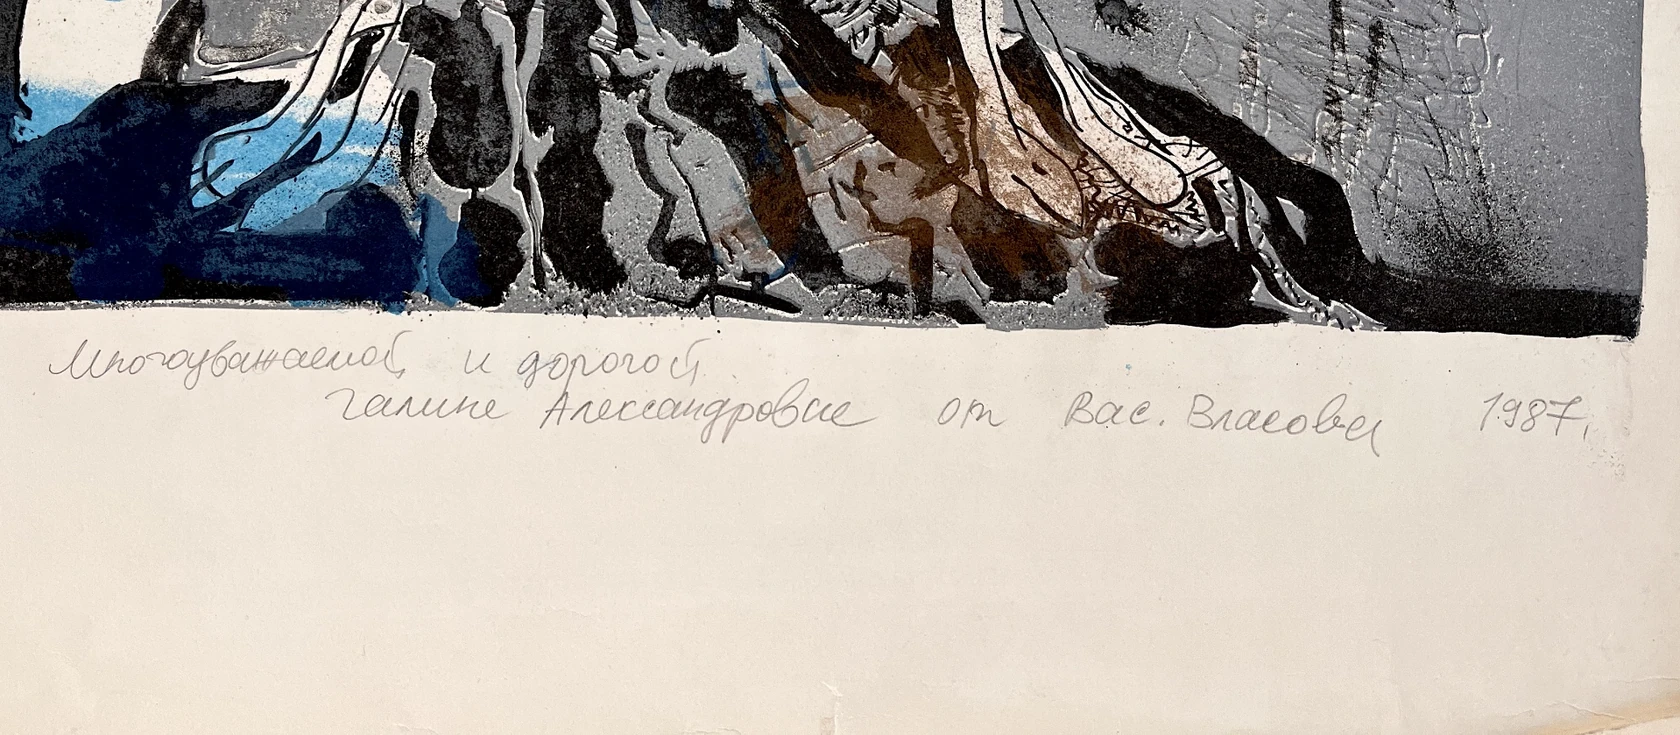 Многоуважаемой и дорогой
Галине Александровне от Вас. Власова 1987.